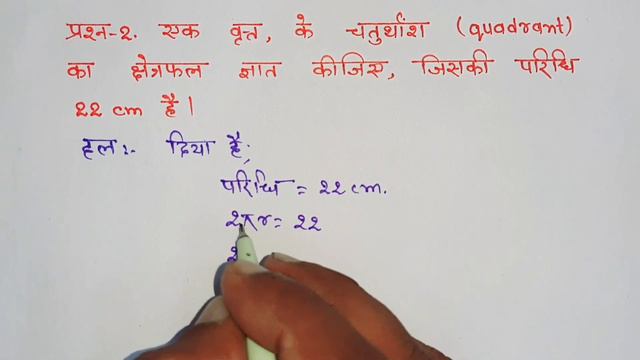 प्रश्न-2. एक वृत्त, के चतुर्थांश (quadrant)
का क्षेत्रफल ज्ञात कीजिए, जिसकी परिधि
22 cm है।
हल:- दिया है;
परिधि = 22 cm.
2πr = 22
2